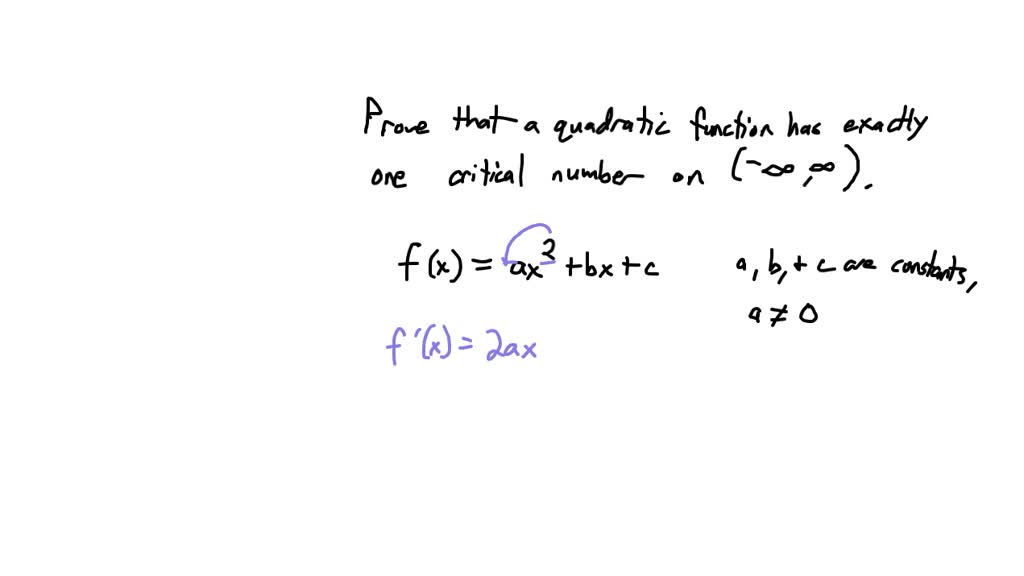 Prove that a quadratic function has exactly
one critical number on (-∞,∞).
f(x) = ax² + bx + c   a, b, + c are constants,
a ≠ 0
f'(x) = 2ax